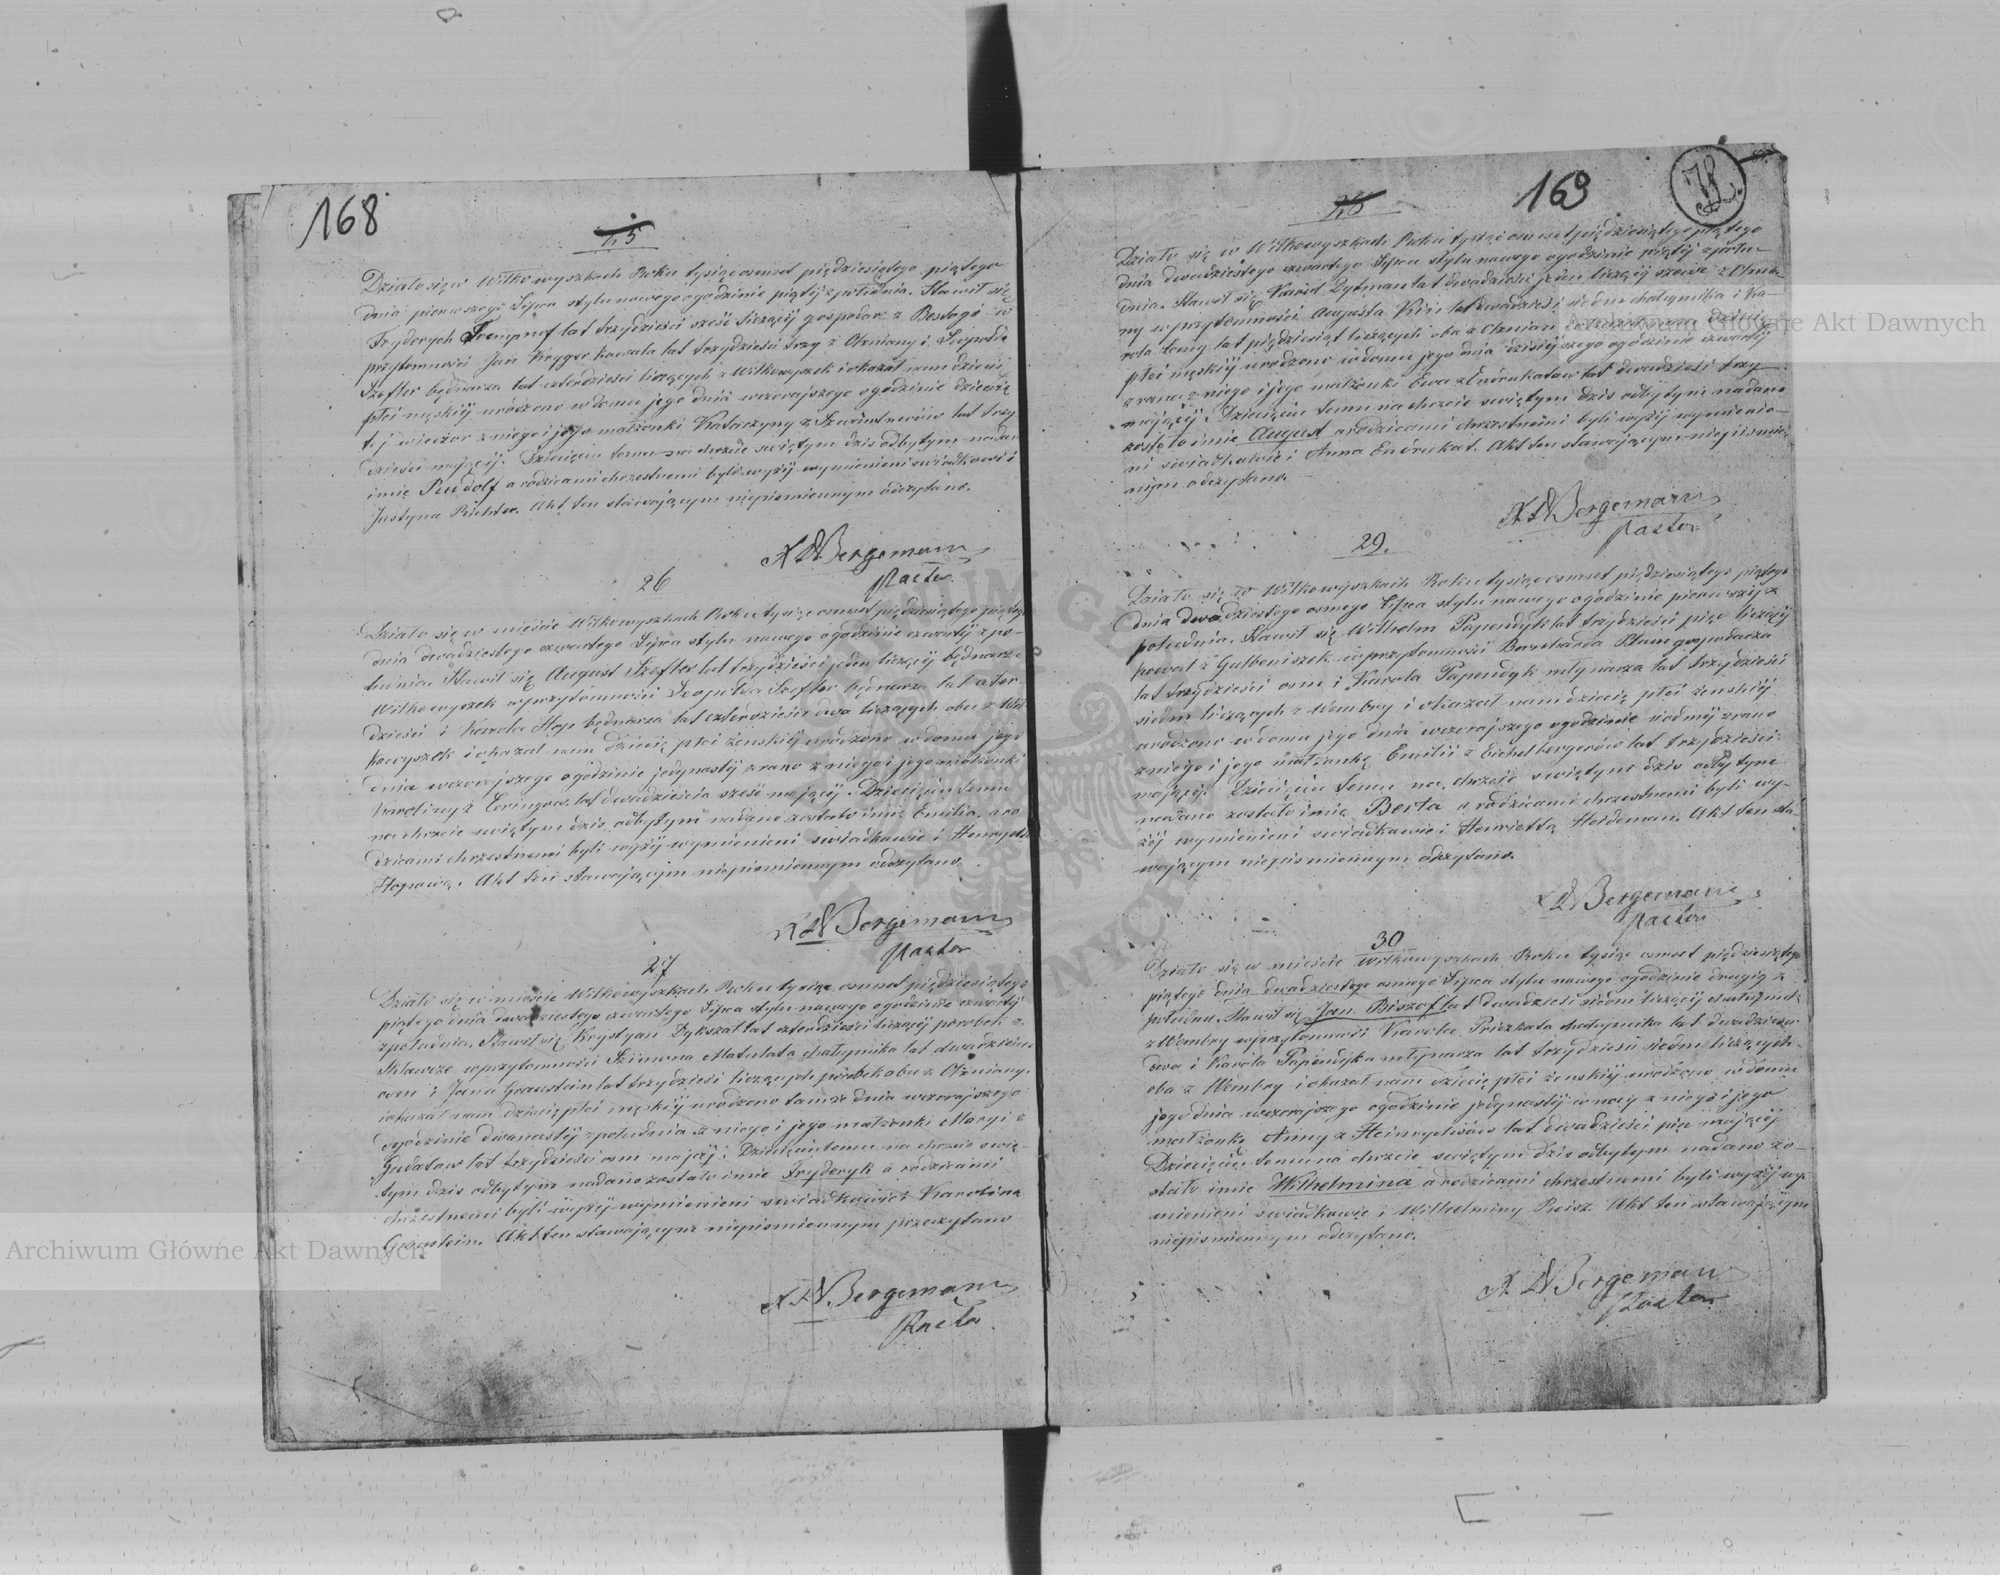 168
25
Działo się w Wiłkowyszkach Roku tysiąc osmset pięćdziesiątego piątego
dnia pierwszego Lipca stylu nowego o godzinie piątej z południa. Stawił się
Fryderych lat trzydzieści sześć liczący gospodarz z w
przytomności Jan Kryger kowala lat trzydzieści trzy z Olwiany i Leopolda
Szefler bednarza lat czterdzieści liczących z Wiłkowyszek i okazał nam dziecię
płci męskiej urodzone w domu jego dnia wczorajszego o godzinie dziewią
tej wieczor z niego i jego małżonki Katarzyny z lat trzy
dzieści mającej. Dziecięciu temu na chrzcie świętym dziś odbytym nadano
imie Rudolf a rodzicami chrzestnemi byli wyżej wymienieni świadkowie i
Justyna Richter. Akt ten stawającym niepismiennym odczytano.
X Bergemann
Pastor
26
Działo się w mieście Wiłkowyszkach Roku tysiąc osmset pięćdziesiątego piątego
dnia dwadziestego czwartego Lipca stylu nowego o godzinie czwartej z po-
łudnia. Stawił się August Szefler lat trzydzieści jeden liczący bednarz z
Wiłkowyszek w przytomności Leopolda Szefler bednarza lat czter
dzieści i Karola Hop bednarza lat czterdzieści dwa liczących obu z Wił
kowyszek i okazał nam dziecię płci żeńskiej urodzone w domu jego
dnia wczorajszego o godzinie jedynastej z rana z niego i jego małżonki
Karoliny z lat dwadzieścia sześć mającej. Dziecięciu temu
na chrzcie świętym dziś odbytym nadano zostało imie Emilia, a ro
dzicami chrzestnemi byli wyżej wymienieni świadkowie i
Akt ten stawającym niepismiennym odczytano.
X Bergemann
Pastor
27
Działo się w mieście Wiłkowyszkach Roku tysiąc osmset pięćdziesiątego
piątego dnia dwadziestego czwartego Lipca stylu nowego o godzinie czwartej
z południa. Stawił się Krystyan Dykszat lat czterdzieści liczący parobek z
w przytomności Szimona Matulata chałupnika lat dwadzieścia
osm i Jana Graustein lat trzydzieści liczących parobek obu z Olwiany.
i okazał nam dziecię płci męskiej urodzone tamże dnia wczorajszego
o godzinie dwanastej z południa z niego i jego małżonki Maryi z
lat trzydzieści osm mającej. Dziecięciu temu na chrzcie świę-
tym dziś odbytym nadano zostało imie Fryderyk a rodzicami
chrzestnemi byli wyżej wymienieni świadkowie i Karolina
Graustein. Akt ten stawającym niepismiennym przeczytano
X Bergemann
Pastor
169
Działo się w Wiłkowyszkach Roku tysiąc osmset pięćdziesiątego piątego
dnia dwadziestego czwartego Lipca stylu nowego o godzinie piątej z połu-
dnia. Stawił się Karol Dytman lat dwadzieścia jeden liczący szewc z
ny w przytomności Augusta lat dwadzieścia siedm chałupnika i Ka-
rola lat pięćdziesiąt liczących oba z i okazał nam dziecię
płci męskiej urodzone w domu jego dnia dzisiejszego o godzinie czwartej
z rana z niego i jego małżonki Ewa z Endrukatow lat dwadzieści trzy
mającej. Dziecięciu temu na chrzcie świętym dziś odbytym nadano
zostało imie August a rodzicami chrzestnemi byli wyżej wymienio-
ni świadkowie i Anna Endrukat. Akt ten stawającym niepismie-
nnym odczytano.
X Bergemann
Pastor
29.
Działo się w Wiłkowyszkach Roku tysiąc osmset pięćdziesiątego piątego
dnia dwadziestego osmego Lipca stylu nowego o godzinie pierwszej z
południa. Stawił się Wilhelm Papendyk lat trzydzieści pięc liczący
kowal z Gulbeniszek w przytomności Burcharda gospodarza
lat trzydzieści osm i Karola Papendyk młynarza lat trzydzieści
siedm liczących z Wembry i okazał nam dziecię płci żenskiej
urodzone w domu jego dnia wczorajszego o godzinie siodmej z rana
z niego i jego małżonkę Emilii z Eichelbergerów lat trzydzieści
mającej. Dziecięciu temu na chrzcie świętym dziś odbytym
nadano zostało imie Berta a rodzicami chrzestnemi byli wy-
żej wymienieni świadkowie i Henrietta Heideman. Akt ten sta-
wającym niepismiennym odczytano.
X Bergemann
Pastor
30
Działo się w mieście Wiłkowyszkach Roku tysiąc osmset pięćdziesiątego
piątego dnia dwadziestego osmego Lipca stylu nowego o godzinie drugiej z
południa. Stawił się Jan Biszof lat dwadzieści siedm liczący
z Wembry w przytomności Karola chałupnika lat dwadzieścia
dwa i Karola Papendyka młynarza lat trzydzieści siedm liczących
oba z Wembry i okazał nam dziecię płci żenskiej urodzone w domu
jego dnia wczorajszego o godzinie jedynastej w nocy z niego i jego
małżonki Anny z lat dwadzieści pięc mającej
Dziecięciu temu na chrzcie świętym dziś odbytym nadano zo-
stało imie Wilhelmina a rodzicami chrzestnemi byli wyżej wy-
mienieni świadkowie i Wilhelminy Reisz. Akt ten stawającym
niepismiennym odczytano.
X Bergemann
Pastor
Archiwum Główne Akt Dawnych
Archiwum Główne Akt Dawnych